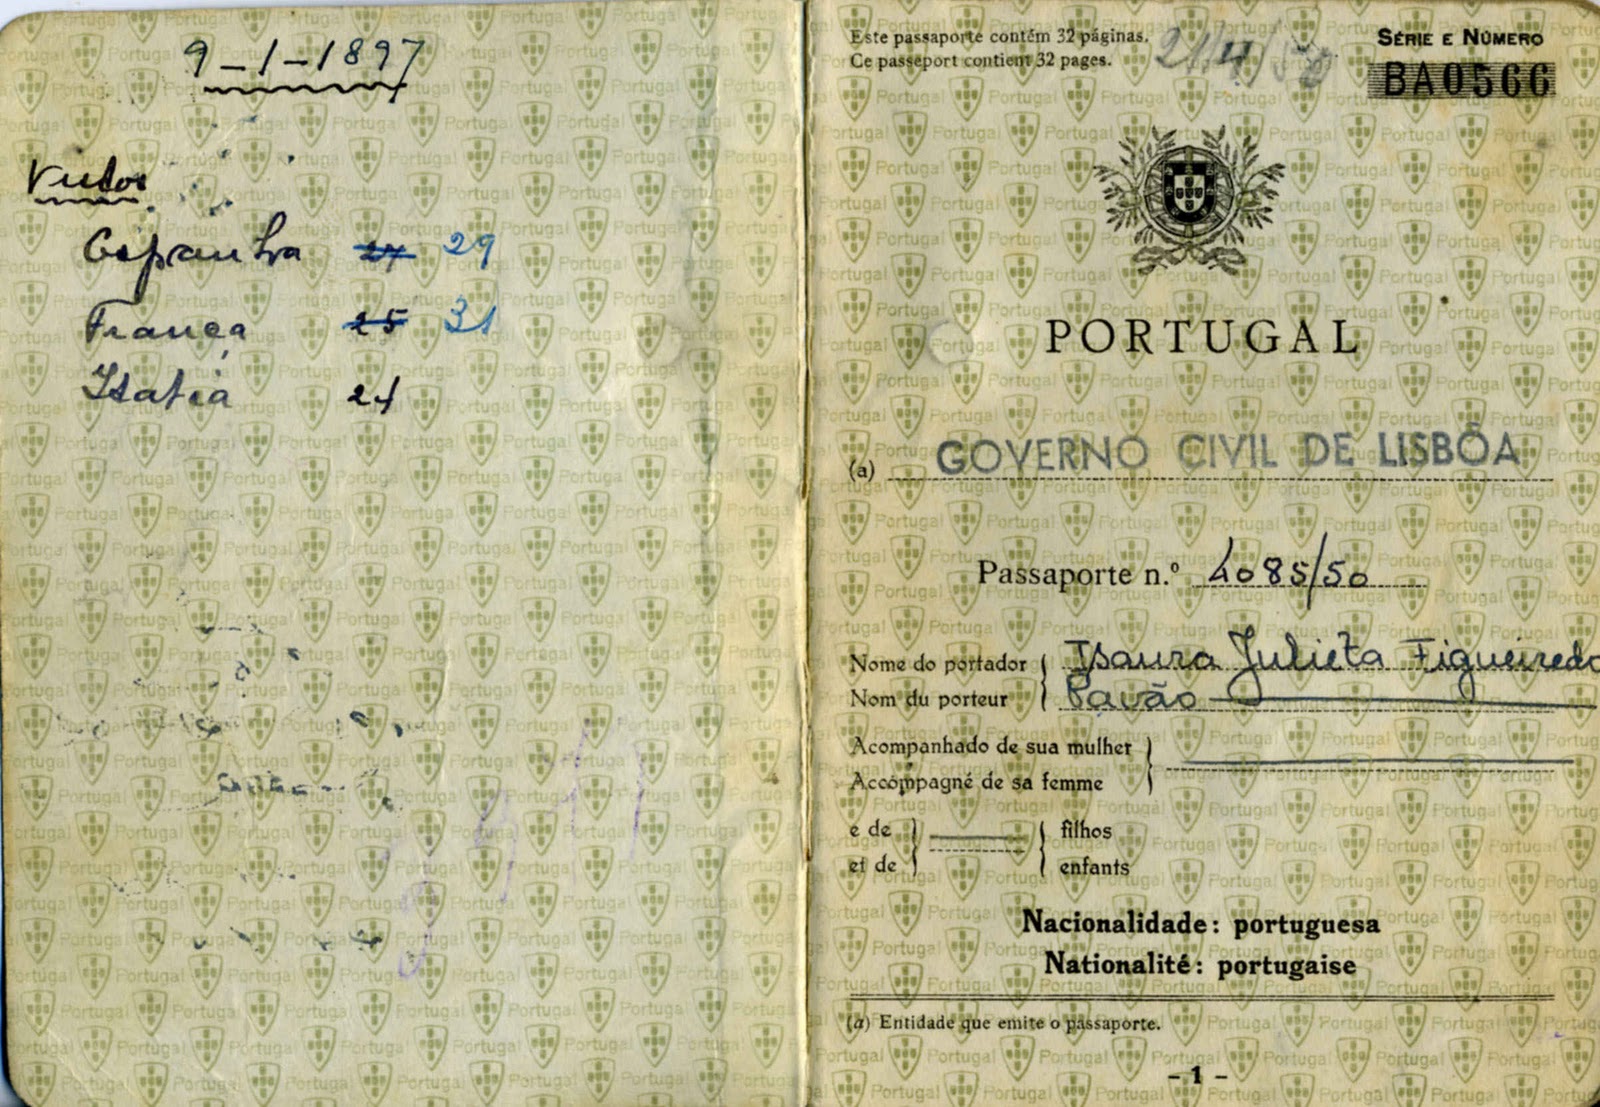 9-1-1897
Vistos
Espanha 24 29
França 25 31
Italia 24
Este passaporte contém 32 páginas.
Ce passeport contient 32 pages.
SÉRIE E NÚMERO
BA0566
PORTUGAL
(a) GOVERNO CIVIL DE LISBÔA
Passaporte n.º 4085/50
Nome do portador Isaura Julieta Figueiredo
Nom du porteur Pavão
Acompanhado de sua mulher
Accompagné de sa femme
e de filhos
et de enfants
Nacionalidade: portuguesa
Nationalité: portugaise
(a) Entidade que emite o passaporte.
- 1 -